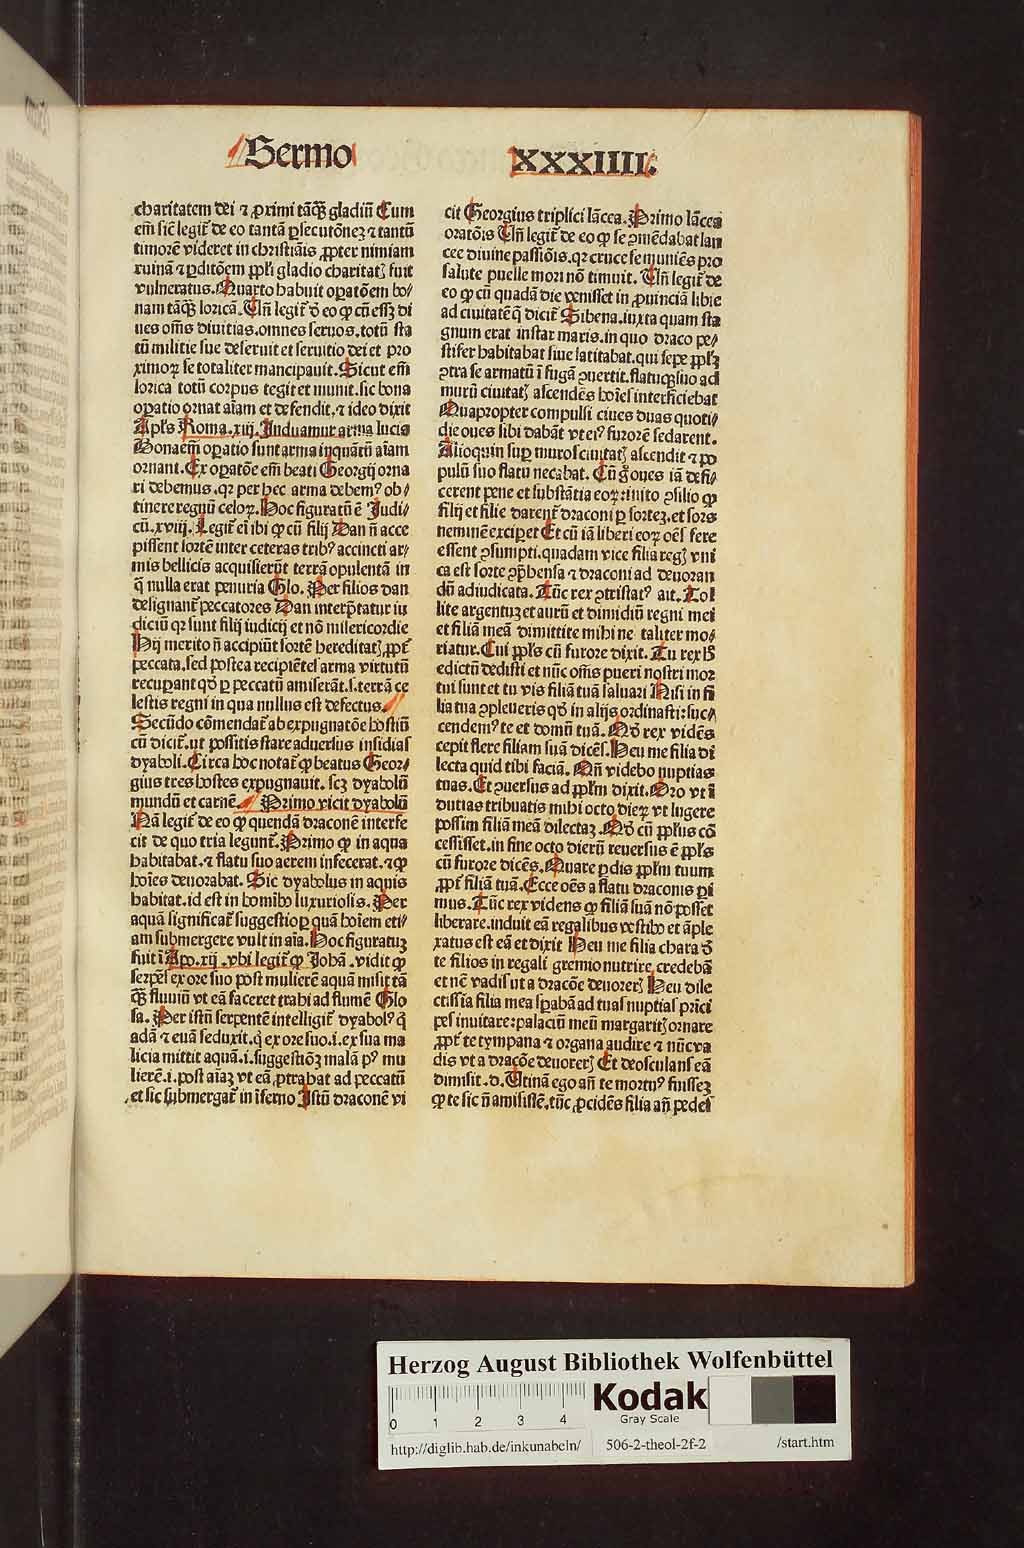 Sermo XXXIIII.
charitatem dei ⁊ ꝓximi tāꝙ̄ gladiū Cum
em̄ sic̄ legit᷑ de eo tantā ꝑsecutōnez ⁊ tantū
timorē videret in christiāis ꝓpter nimiam
ruinā ⁊ ꝑditōem ppl̄i gladio charitatꝫ fuit
vulneratus. Quarto habuit oꝑatōem bo⸗
nam tāꝙ̄ loricā. Un̄ legit᷑ ð eo ꝙ cū essꝫ di
ues om̄s diuitias. omnes seruos. totū sta
tū militie sue deseruit et seruitio dei et pro
ximoꝝ se totaliter mancipauit. Sicut em̄
lorica totū corpus tegit et munit. sic bona
oꝑatio ornat aīam et defendit. ⁊ ideo dixit
Apl̄s Roma. xiij. Induamur arma lucis
Bona em̄ oꝑatio sunt arma inquātū aīam
ornant. Ex oꝑatōe em̄ beati Georgij orna
ri debemus. qꝛ per hec arma debemꝰ ob⸗
tinere regnū celoꝝ. Hoc figuratū ē Judi⸗
cū. xviij. Legit᷑ ei ibi ꝙ cū filij Dan n̄ acce
pissent sortē inter ceteras tribꝰ accincti ar⸗
mis bellicis acquisierūt terrā opulentā in
q̄ nulla erat penuria Glo. Per filios dan
designant᷑ peccatores Dan interp̄tatur iu
diciū qꝛ sunt filij iudicij et nō misericordie
Hij merito n̄ accipiūt sortē hereditatꝫ ꝓpt᷑
peccata. sed postea recipiētes arma virtutū
recuꝑant qð ꝑ peccatū amiserāt. s. terrā ce
lestis regni in qua nullus est defectus.
Secūdo cōmendat᷑ ab expugnatōe hostiū
cū dicit᷑. ut possitis stare aduersus insidias
dyaboli. Circa hoc notat᷑ ꝙ beatus Geor⸗
gius tres hostes expugnauit. scꝫ dyabolū
mundū et carnē. Primo vicit dyabolū
Nā legit᷑ de eo ꝙ quendā draconē interfe
cit de quo tria legunt᷑. Primo ꝙ in aqua
habitabat. ⁊ flatu suo aerem infecerat. ⁊ ꝙ
hoīes deuorabat. Sic dyabolus in aquis
habitat. id est in homībꝰ luxuriosis. Per
aquā significat᷑ suggestio ꝑ quā hoīem eti⸗
am submergere vult in aīa. Hoc figuratuꝫ
fuit ī Apo. xij. vbi legit᷑ ꝙ Johā. vidit ꝙ
serpēs ex ore suo post mulierē aquā misit tā
ꝙ̄ fluuiū vt eā faceret trahi ad flumē Glo
sa. Per istū serpentē intelligit᷑ dyabolꝰ q̄
adā ⁊ euā seduxit. q̇ ex ore suo. i. ex sua ma
licia mittit aquā. i. suggestiōꝫ malā pꝰ mu
lierē. i. post aīaꝫ vt eā ꝓtrahat ad peccatū
et sic submergat᷑ in īferno Istū draconē vi
cit Georgius triplici lācea. Primo lācea
oratōis Un̄ legit᷑ de eo ꝙ se ꝯmēdabat lan
cee diuine passiōis. qꝛ cruce se muniēs pro
salute puelle mori nō timuit. Un̄ legit᷑ de
eo ꝙ cū quadā die venisset in ꝓuinciā libie
ad ciuitatē q̄ dicit᷑ Sibena. iuxta quam sta
gnum erat instar maris. in quo draco pe⸗
stifer habitabat siue latitabat. qui sepe ppl̄ꝫ
ꝯtra se armatū ī fugā ꝯuertit. flatuqꝫ suo ad
murū ciuitatꝫ ascendēs hoīes interficiebat
Quapropter compulsi ciues duas quoti⸗
die oues sibi dabāt vt eiꝰ furorē sedarent.
Alioquin suꝑ muros ciuitatꝫ ascendit ⁊ po
pulū suo flatu necabat. Cū g̊ oues iā defi⸗
cerent pene et substātia eoꝝ: inito ꝯsilio ꝙ
filij et filie darent᷑ draconi ꝑ sortez. et sors
neminē exciꝑet Et cū iā liberi eoꝝ oēs fere
essent ꝯsumpti. quadam vice filia regꝫ vni
ca est sorte ꝯp̄hensa ⁊ draconi ad deuoran
dū adiudicata. Tūc rex ꝯtristatꝰ ait. Tol
lite argentuꝫ et aurū et dimidiū regni mei
et filiā meā dimittite mihi ne taliter mo⸗
riatur. Cui ppl̄s cū furore dixit. Tu rex ꝉꝫ
edictū dedisti et nūc om̄s pueri nostri mor
tui sunt et tu vis filiā tuā saluari Nisi in fi
lia tua ꝯpleueris qð in alijs ordinasti: suc⸗
cendemꝰ te et domū tuā. Qð rex vidēs
cepit flere filiam suā dicēs. Heu me filia di
lecta quid tibi faciā. Qn̄ videbo nuptias
tuas. Et ꝯuersus ad ppl̄m dixit. Oro vt ī
dutias tribuatis mihi octo dieꝝ vt lugere
possim filiā meā dilectaꝫ. Qð cū ppl̄us cō
cessisset. in fine octo dierū reuersus ē ppl̄s
cū furore dicēs. Quare ꝑdis ppl̄m tuum
ꝓpt᷑ filiā tuā. Ecce oēs a flatu draconis ꝑi
mus. Tūc rex videns ꝙ filiā suā nō posset
liberare. induit eā regalibus vestibꝰ et āple
xatus est eā et dixit Heu me filia chara ð
te filios in regali gremio nutrire credebā
et nc̄ vadis ut a dracōe deuorerꝫ Heu dile
ctissia filia mea sꝑabā ad tuas nuptias prīci
pes inuitare: palaciū meū margaritꝫ ornare
ꝓpt᷑ te tympana ⁊ organa audire ⁊ nūc va
dis vt a dracōe deuorerꝫ Et deosculans eā
dimisit. d. Utinā ego an̄ te mortuꝰ fuissez
ꝙ te sic n̄ amisissē. tūc ꝓcidēs filia an̄ pedes
Herzog August Bibliothek Wolfenbüttel
0 1 2 3 4 Kodak
Gray Scale
http://diglib.hab.de/inkunabeln/ 506-2-theol-2f-2 /start.htm